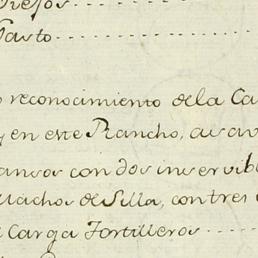 Viejos
Pasto
reconocimiento de la Ca
en este Rancho, a
ansos con dos inservib
Machos de Silla, con tres
Carga Tortilleros